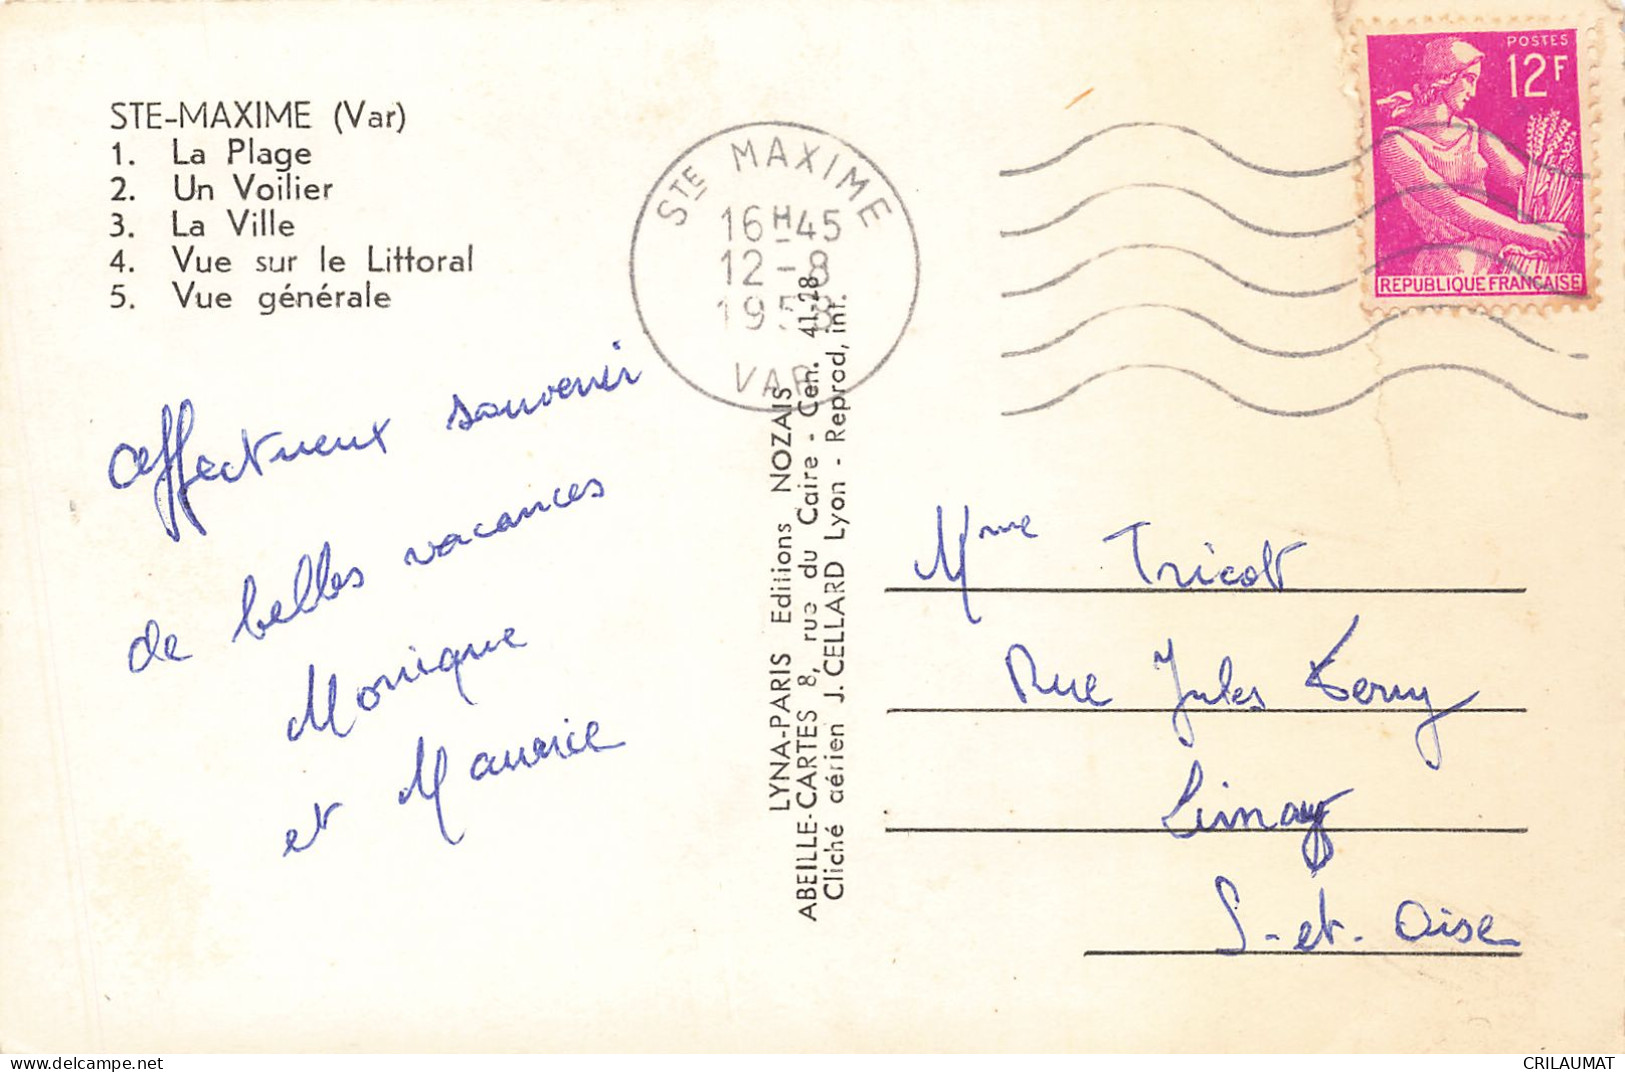 STE-MAXIME (Var)
1. La Plage
2. Un Voilier
3. La Ville
4. Vue sur le Littoral
5. Vue générale
affectueux souvenir
de belles vacances
Monique
et Maurice
STE MAXIME
16H45
12-8
1958
VAR
LYNA-PARIS Editions NOZAIS
ABEILLE-CARTES 8, rue du Caire - Cen. 41-28
Cliché aérien J. CELLARD Lyon - Reprod. int.
POSTES
12F
REPUBLIQUE FRANÇAISE
Mme Tricot
Rue Jules Ferry
Limay
S.-et-Oise
CRILAUMAT
https://www.delcampe.net